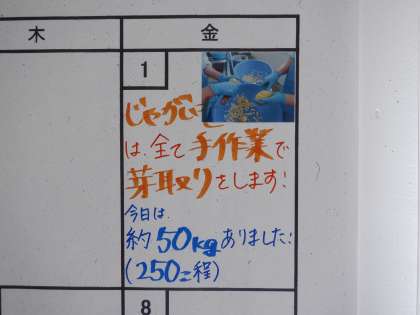 木 金
1
じゃがいも
は、全て手作業で
芽取りをします!
今日は、
約50kgありました!
(250コ程)
8